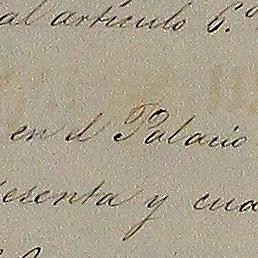 al artículo 6.º
en el Palacio
esenta y cua